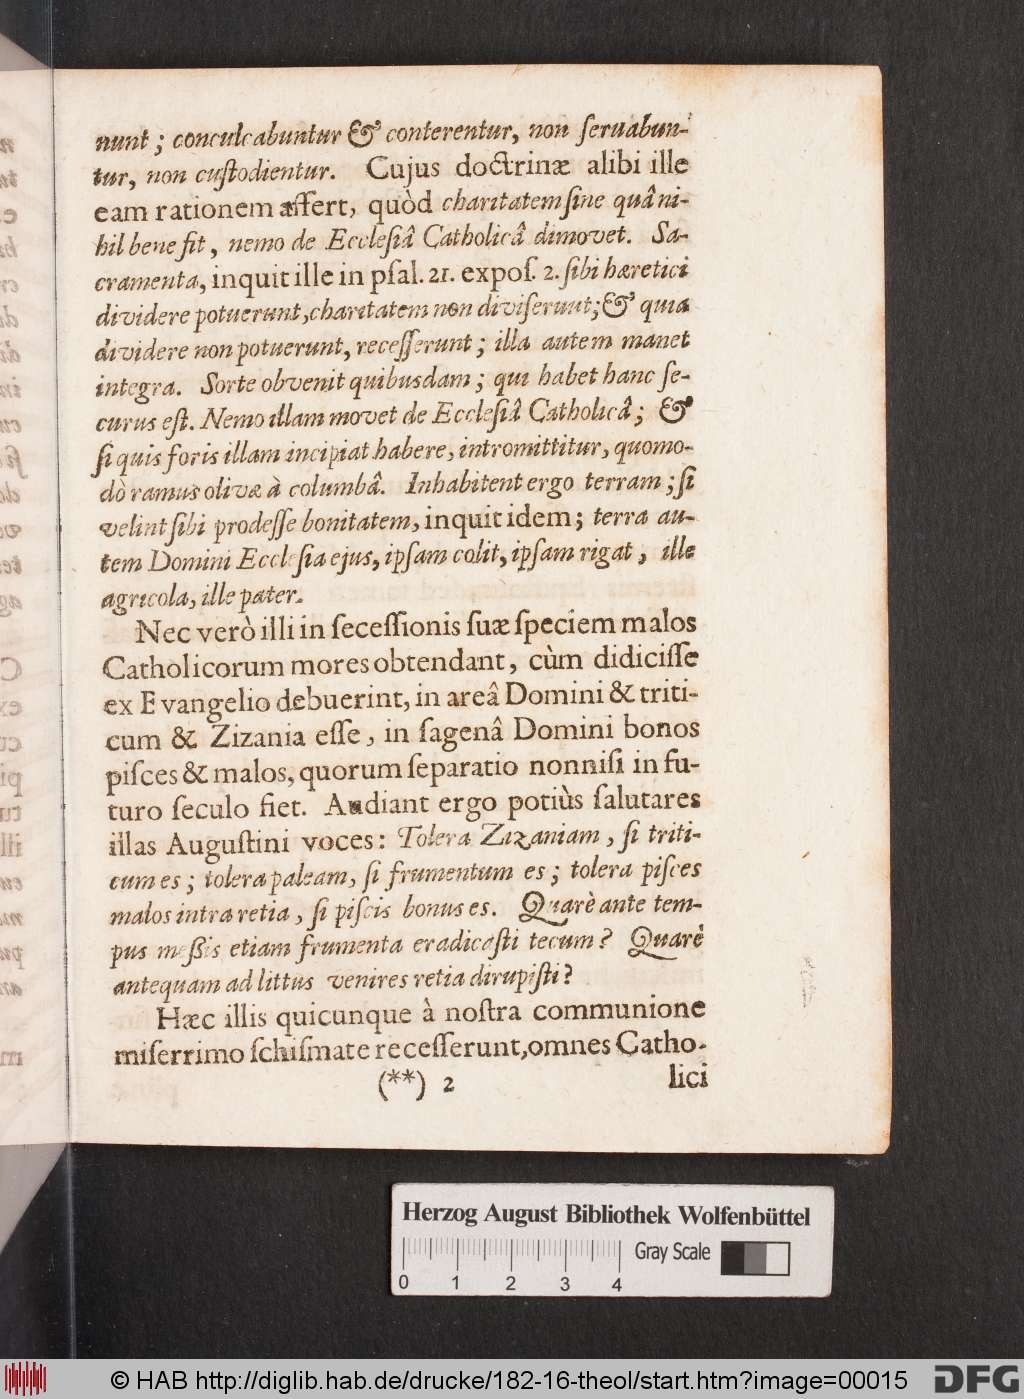 nunt; conculcabuntur & conterentur, non ſeruabun-
tur, non cuſtodientur. Cujus doctrinæ alibi ille
eam rationem affert, quòd charitatem ſine quâ ni-
hil bene fit, nemo de Eccleſiâ Catholicâ dimovet. Sa-
cramenta, inquit ille in pſal. 21. expoſ. 2. ſibi hæretici
dividere potuerunt, charitatem non diviſerunt; & quia
dividere non potuerunt, receſſerunt; illa autem manet
integra. Sorte obvenit quibusdam; qui habet hanc ſe-
curus eſt. Nemo illam movet de Eccleſiâ Catholicâ; &
ſi quis foris illam incipiat habere, intromittitur, quomo-
dò ramus olivæ à columbâ. Inhabitent ergo terram; ſi
velint ſibi prodeſſe bonitatem, inquit idem; terra au-
tem Domini Eccleſia ejus, ipſam colit, ipſam rigat, ille
agricola, ille pater.
Nec verò illi in ſeceſſionis ſuæ ſpeciem malos
Catholicorum mores obtendant, cùm didiciſſe
ex Evangelio debuerint, in areâ Domini & triti-
cum & Zizania eſſe, in ſagenâ Domini bonos
piſces & malos, quorum ſeparatio nonniſi in fu-
turo ſeculo fiet. Audiant ergo potiùs ſalutares
illas Auguſtini voces: Tolera Zizaniam, ſi triti-
cum es; tolera paleam, ſi frumentum es; tolera piſces
malos intra retia, ſi piſcis bonus es. Quarè ante tem-
pus meßis etiam frumenta eradicaſti tecum? Quarè
antequam ad littus venires retia dirupiſti?
Hæc illis quicunque à noſtra communione
miſerrimo ſchiſmate receſſerunt, omnes Catho-
(**) 2 lici
Herzog August Bibliothek Wolfenbüttel
Gray Scale
0 1 2 3 4
© HAB http://diglib.hab.de/drucke/182-16-theol/start.htm?image=00015
DFG